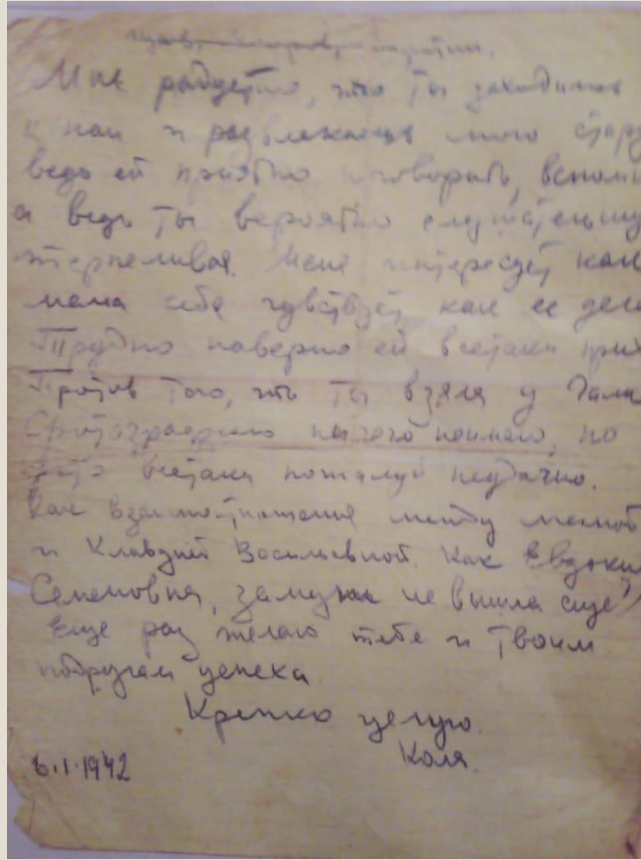 Мне радостно, что ты заходишь
к нам и развлекаешь мою стару
ведь ей приятно поговорить, вспомн
а ведь ты вероятно слушательниц
терпеливая. Меня интересует как
мама себя чувствует как ее дел
Трудно наверно ей всетаки при
Против того, что ты взяла у Гали
Фотографию ничего неимею, но
это всетаки пожалуй неудачно.
Как взаимоотношения между мамой
и Клавдией Васильевной. Как Евдоки
Семеновна, замуж не вышла еще?
Еще раз желаю тебе и твоим
подругам успеха
Крепко целую.
Коля.
6.I.1942